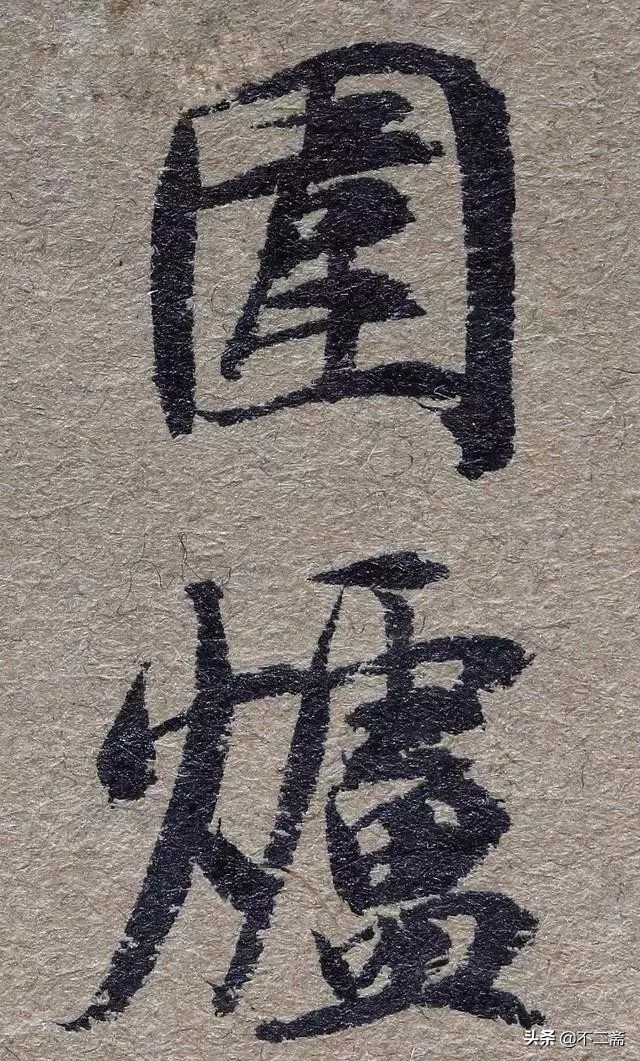 圍爐
头条 @不二斋